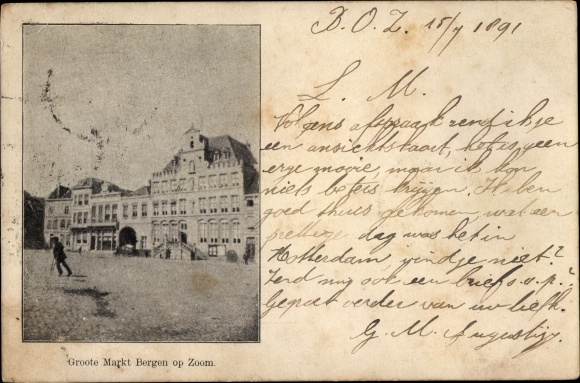 B.O.Z. 15/7 1891
L. M.
Volgens afspraak zend ik je
een ansichtkaart, het is geen
erge mooie, maar ik kon
niets beters krijgen. Ik ben
goed thuis gekomen, wat een
prettige dag was het in
Rotterdam vind je niet?
Zend mij ook een brief o.s.p.?
Gegroet verder van uw liefh.
G. M. Augustijn.
Groote Markt Bergen op Zoom.